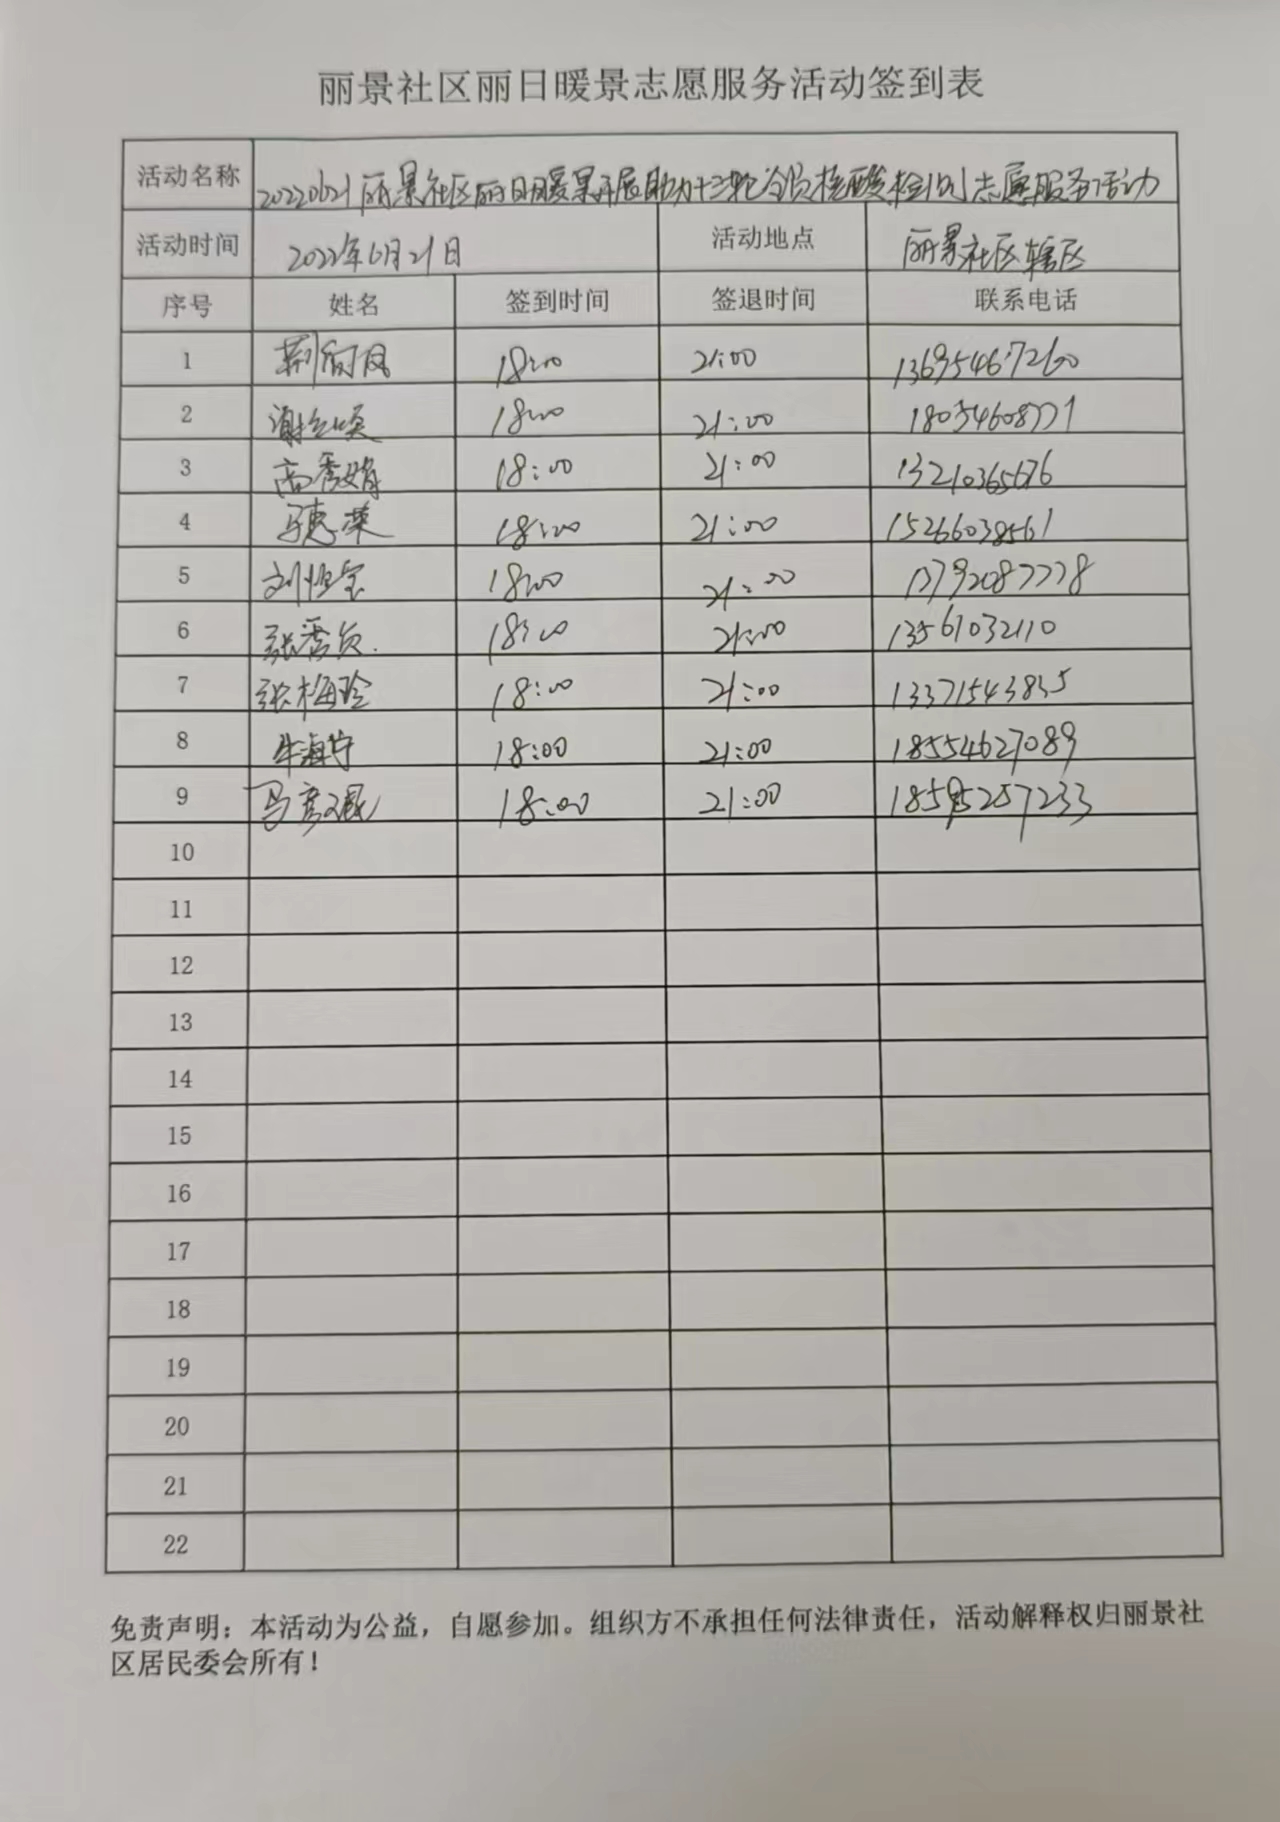 丽景社区丽日暖景志愿服务活动签到表
活动名称 20220621丽景社区丽日暖景开展助力十三轮全员核酸检测志愿服务活动
活动时间 2022年6月21日 活动地点 丽景社区辖区
序号 姓名 签到时间 签退时间 联系电话
1 18:00 21:00 13695467260
2 18:00 21:00 18054608771
3 高秀娟 18:00 21:00 13210365676
4 马惠荣 18:00 21:00 15266038561
5 刘恒宝 18:00 21:00 13792087778
6 张秀贞 18:00 21:00 13561032110
7 张梅玲 18:00 21:00 13371543835
8 牛海宁 18:00 21:00 18554627089
9 马彦 18:00 21:00 18595257233
10
11
12
13
14
15
16
17
18
19
20
21
22
免责声明：本活动为公益，自愿参加。组织方不承担任何法律责任，活动解释权归丽景社
区居民委会所有！